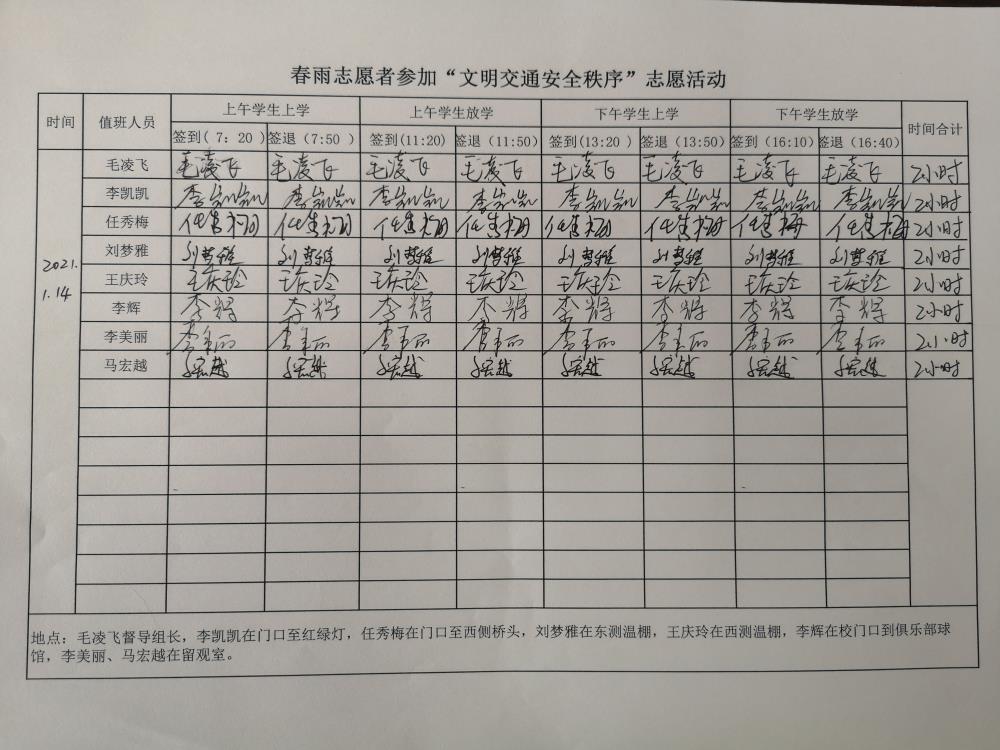 春雨志愿者参加“文明交通安全秩序”志愿活动
时间 值班人员 上午学生上学 上午学生放学 下午学生上学 下午学生放学 时间合计
签到( 7: 20 ) 签退 (7:50 ) 签到(11:20) 签退 (11:50) 签到(13:20 ) 签退 (13:50) 签到 (16:10) 签退 (16:40)
2021.
1.14
毛凌飞 毛凌飞 毛凌飞 毛凌飞 毛凌飞 毛凌飞 毛凌飞 毛凌飞 毛凌飞 2小时
李凯凯 李凯凯 李凯凯 李凯凯 李凯凯 李凯凯 李凯凯 李凯凯 李凯凯 2小时
任秀梅 任秀梅 任秀梅 任秀梅 任秀梅 任秀梅 任秀梅 任秀梅 任秀梅 2小时
刘梦雅 刘梦雅 刘梦雅 刘梦雅 刘梦雅 刘梦雅 刘梦雅 刘梦雅 刘梦雅 2小时
王庆玲 王庆玲 王庆玲 王庆玲 王庆玲 王庆玲 王庆玲 王庆玲 王庆玲 2小时
李辉 李辉 李辉 李辉 李辉 李辉 李辉 李辉 李辉 2小时
李美丽 李美丽 李美丽 李美丽 李美丽 李美丽 李美丽 李美丽 李美丽 2小时
马宏越 马宏越 马宏越 马宏越 马宏越 马宏越 马宏越 马宏越 马宏越 2小时
地点：毛凌飞督导组长，李凯凯在门口至红绿灯，任秀梅在门口至西侧桥头，刘梦雅在东测温棚，王庆玲在西测温棚，李辉在校门口到俱乐部球
馆，李美丽、马宏越在留观室。